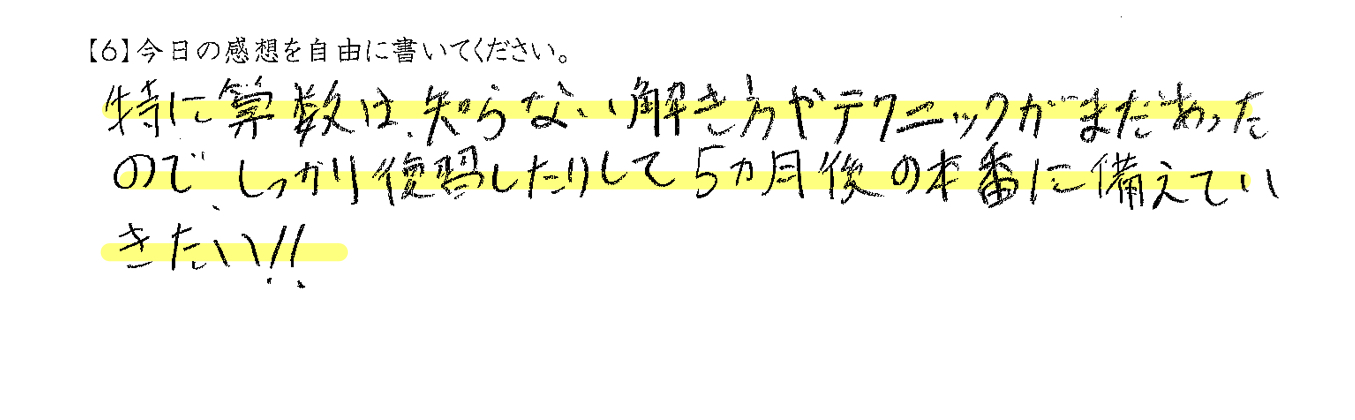 【6】今日の感想を自由に書いてください。
特に算数は、知らない解き方やテクニックがまだあった
ので、しっかり復習したりして5ヵ月後の本番に備えてい
きたい!!